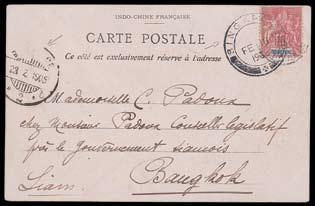 INDO-CHINE FRANÇAISE
CARTE POSTALE
Ce côté est exclusivement réservé à l'adresse
SINGAP
FE
190
23 2 1905
2
Mademoiselle C. Padoux
chez Monsieur Padoux Conseil Législatif
près le Gouvernement siamois
Bangkok
Siam